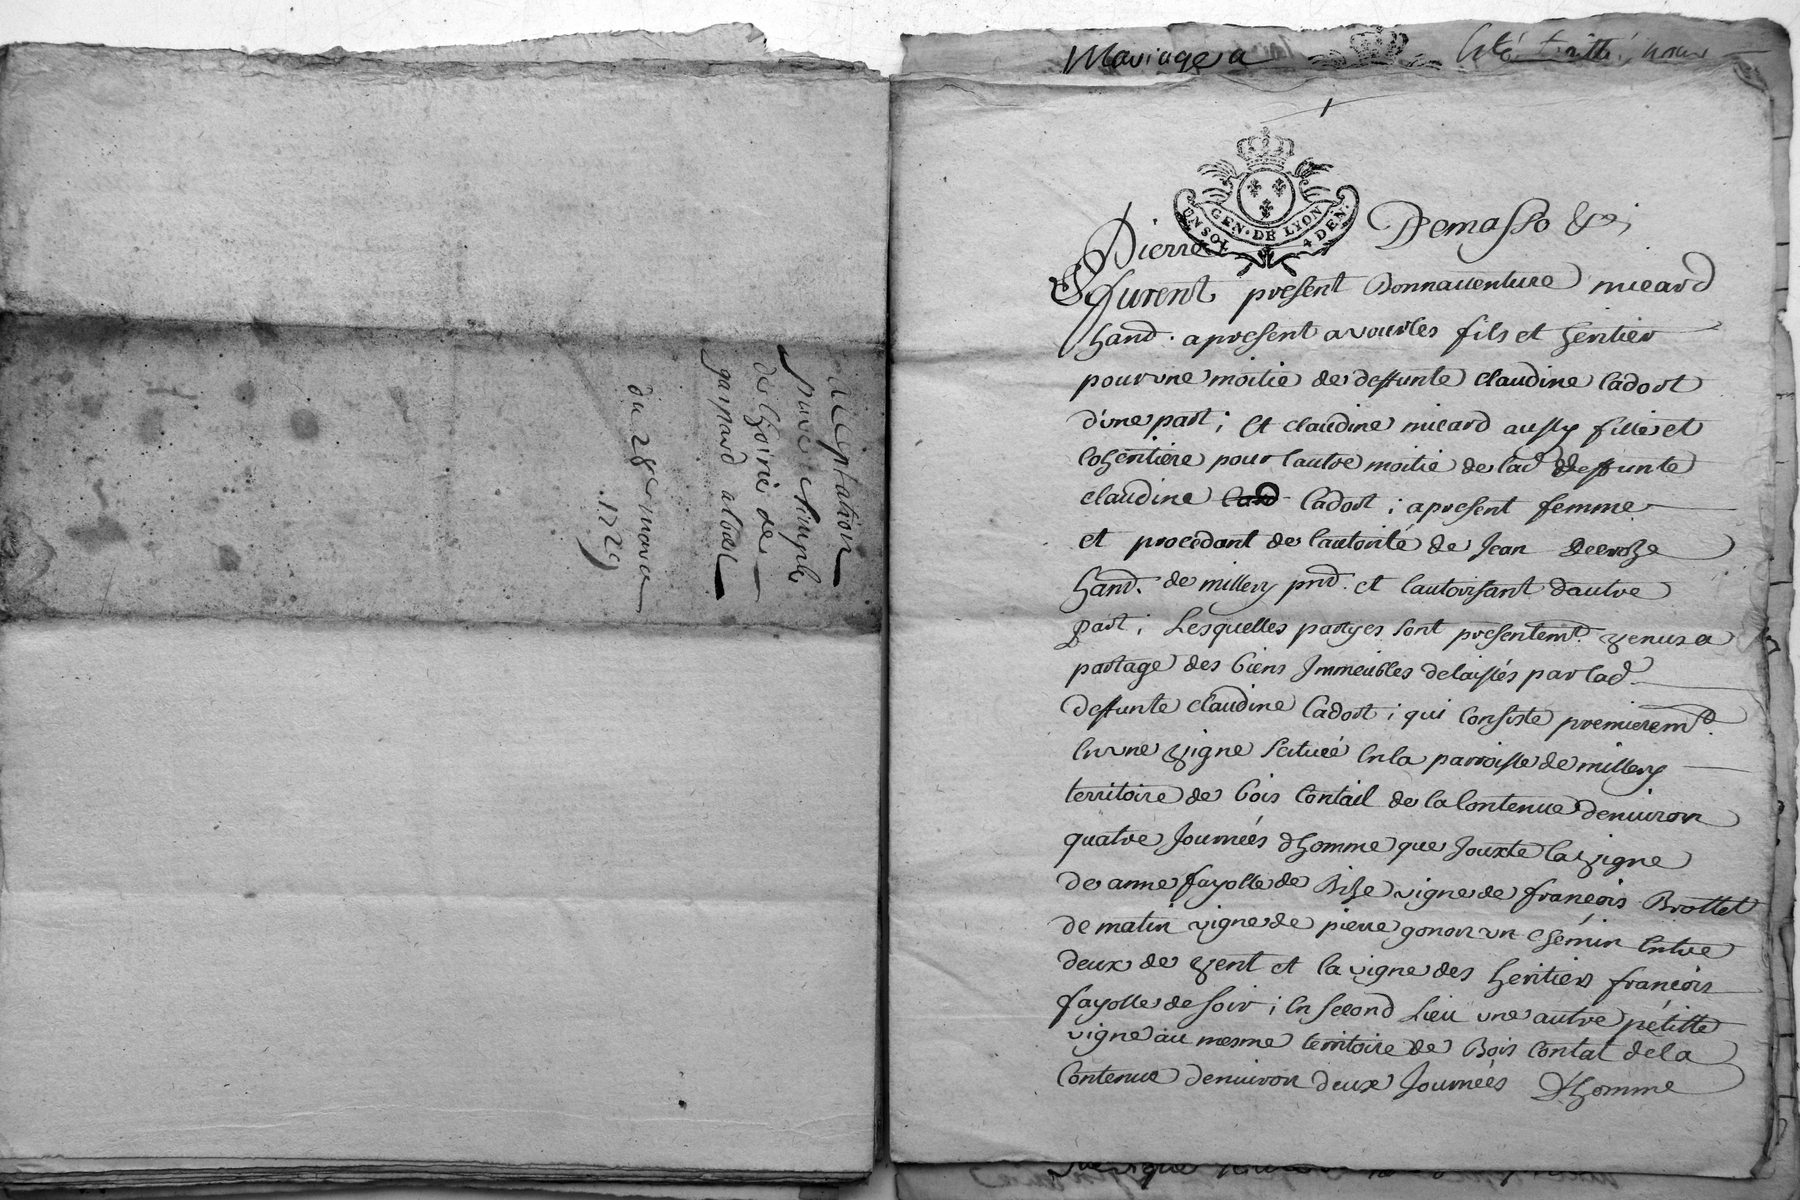 acceptation
pure et simple
de lhoirie de
gaspard
du 28e mars
1729
Mariage a
GEN. DE LYON
UN SOL 4 DEN.
Pierre
furent present Bonnauenture micard
hand. apresent a vourles fils et heritier
pour vne moitie de deffunte claudine Cadort
d'vne part ; Et claudine micard aussy fille et
Coheritiere pour l'autre moitie de lad. deffunte
claudine Cadort ; apresent femme
et procedant de l'autorité de Jean
hand. de millery pnt. et l'autorisant d'autre
part ; Lesquelles partyes sont presentemt. venus a
partage des biens Immeubles delaissés par lad.
deffunte claudine Cadort ; qui Consiste premieremt.
En vne vigne scituée En la parroisse de millery
territoire de bois Contail de la Contenue denuiron
quatre Journées d'homme que Jouxte la vigne
de anne fayolle de Bize vigne de françois Brottet
de matin vigne de pierre gonon vn chemin Entre
deux de vent et la vigne des heritiers françois
fayolle de soir ; En second Lieu vne autre petitte
vigne au mesme territoire de Bois Contal de la
Contenue denuiron deux Journées d'homme